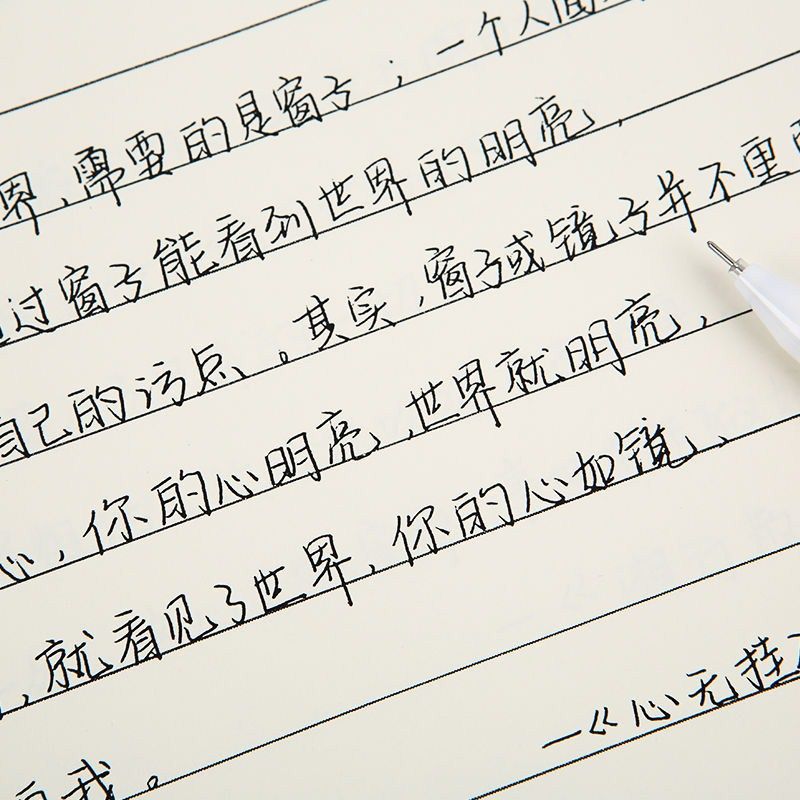 一个人
界,需要的是窗子;
过窗子能看到世界的明亮,
自己的污点。其实,窗子或镜子并不重
心,你的心明亮,世界就明亮,
,就看见了世界,你的心如镜,
—《心无挂
我。